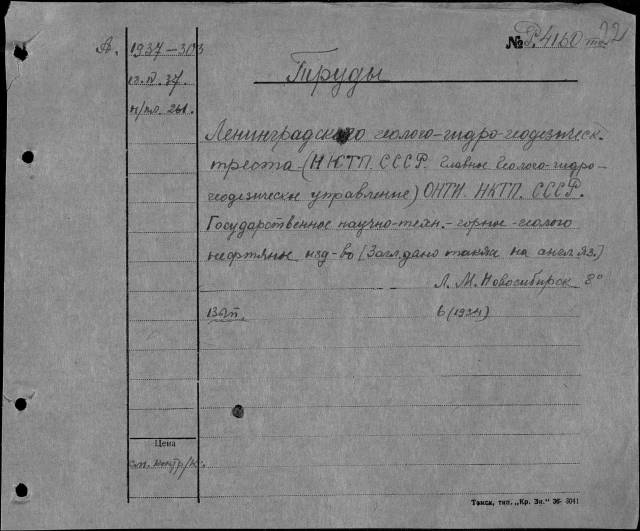 А. 1937-303 № Р4160
13.IV.37
Труды
Ленинградского геолого-гидро-геодезическ.
треста (НКТП. СССР. Главное Геолого-гидро-
геодезическое управление) ОНТИ. НКТП. СССР.
Государственное научно-техн.-горное-геолого
нефтяное изд-во (Загл. дано также на англ. яз.)
Л. М. Новосибирск 8°
6 (1934)
Цена
Томск, тип. „Кр. Зн." 36- 3041